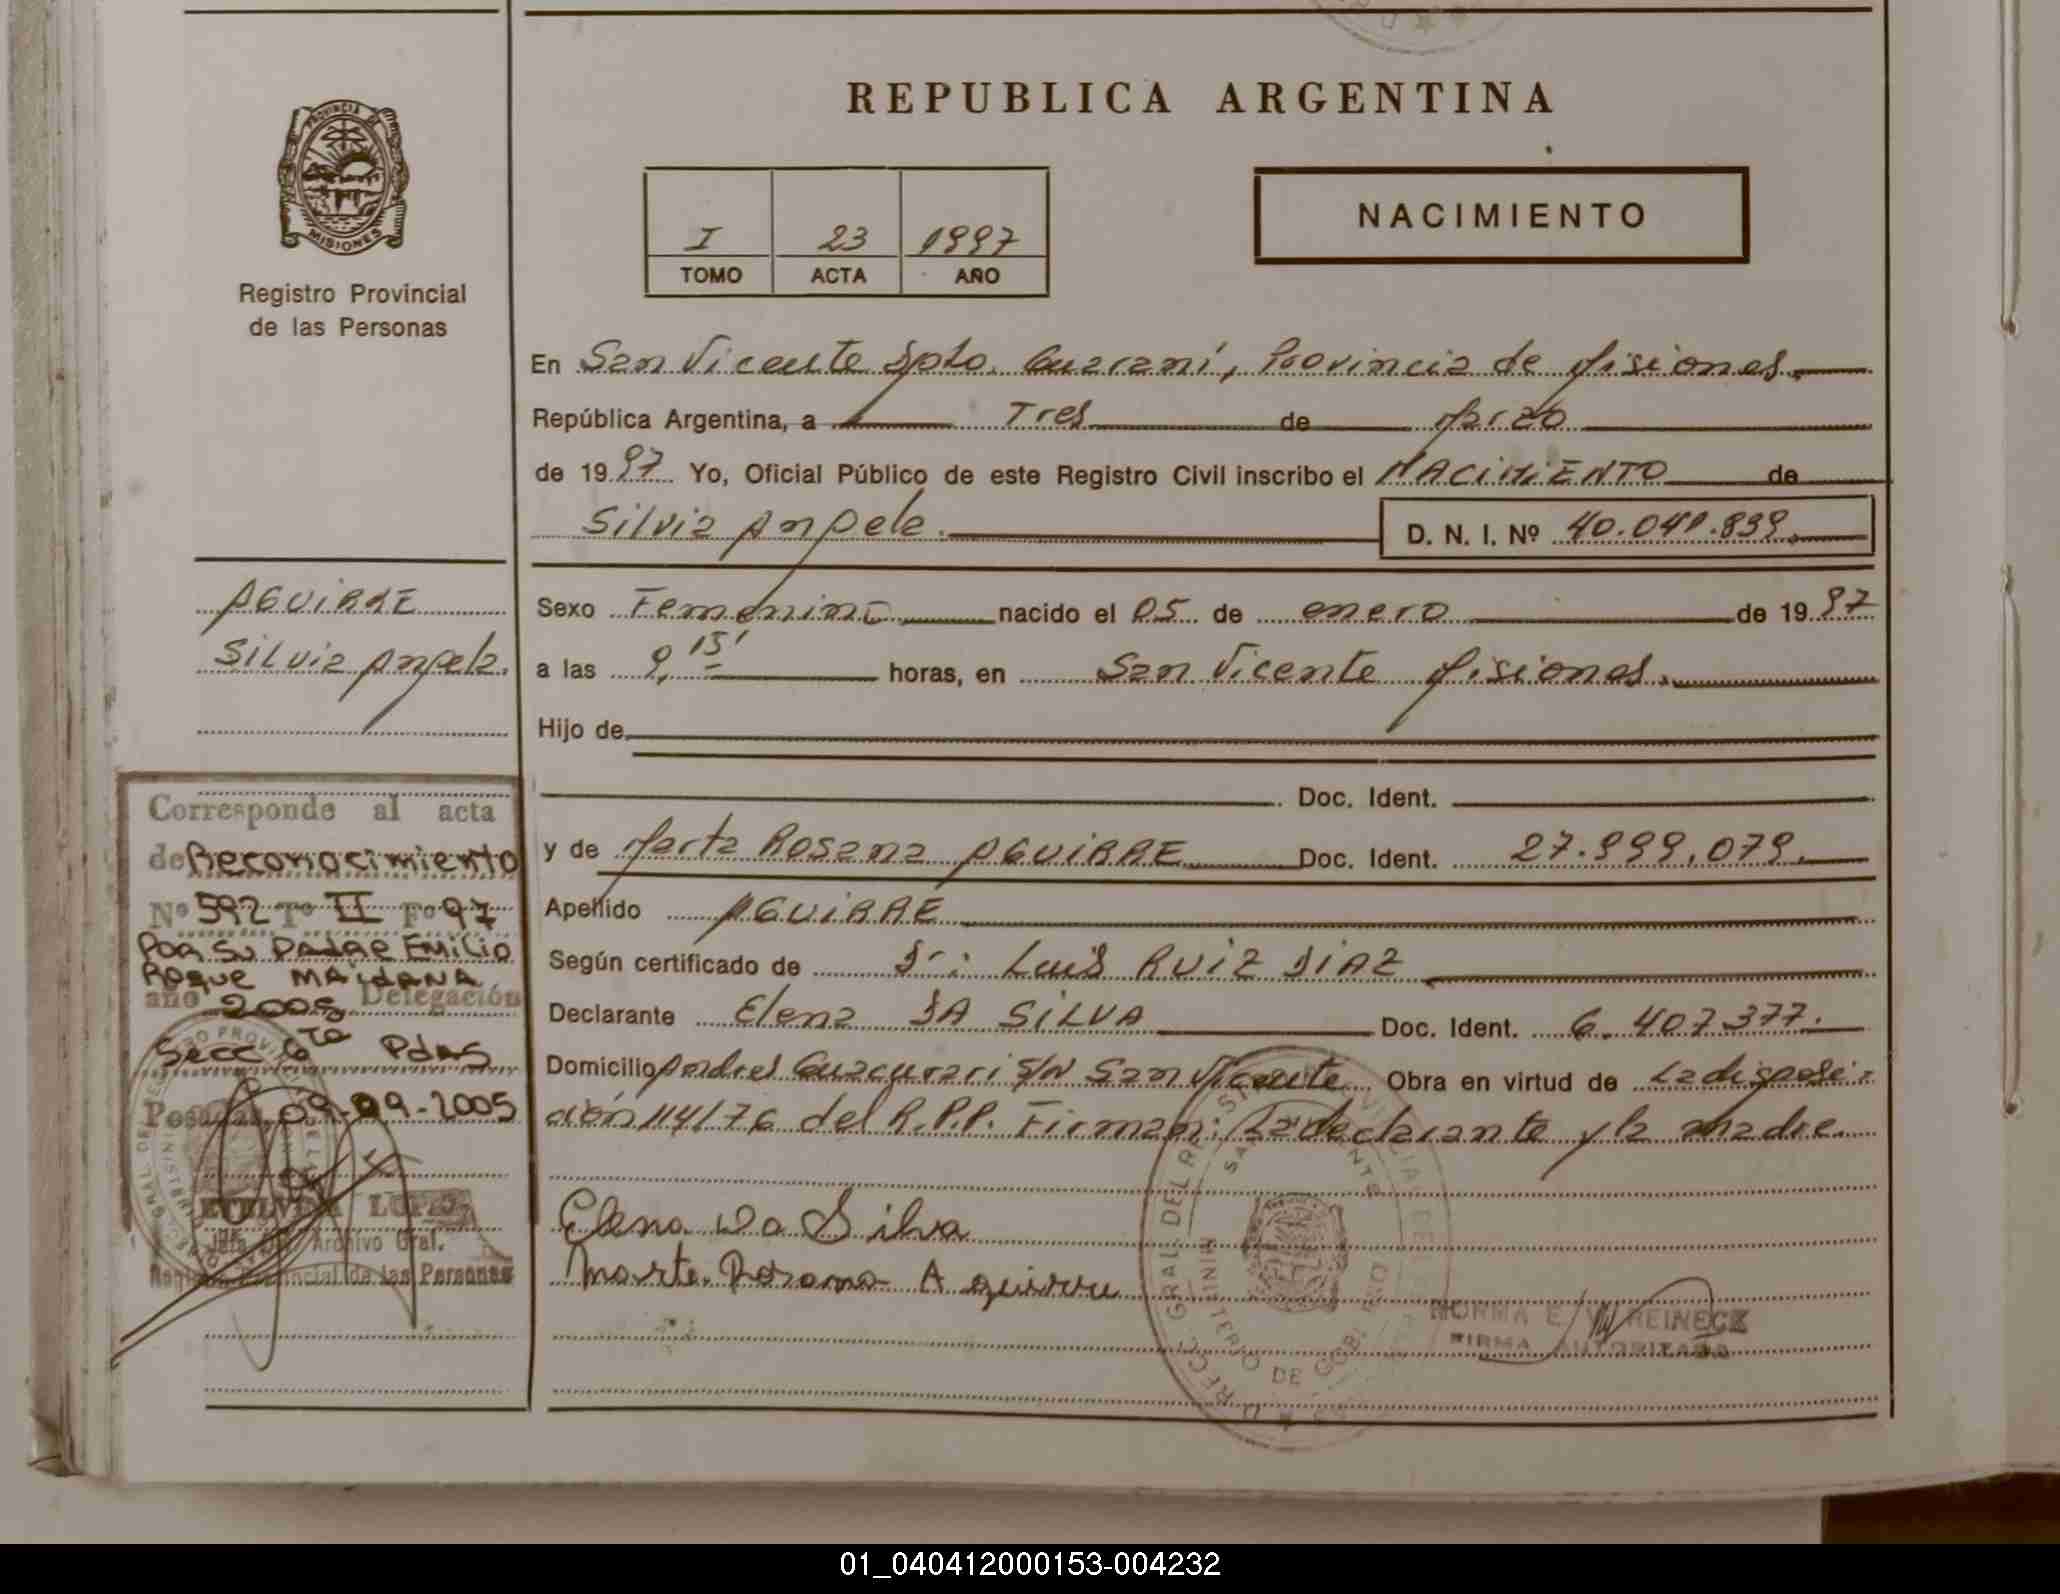 REPUBLICA ARGENTINA
PROVINCIA DE
MISIONES
Registro Provincial
de las Personas
I 23 1997
TOMO ACTA AÑO
NACIMIENTO
En San Vicente Dpto. Guaraní, Provincia de Misiones.
República Argentina, a Tres de Marzo
de 1997 Yo, Oficial Público de este Registro Civil inscribo el NACIMIENTO de
Silvia Angela. D. N. I. Nº 40.041.839.
Sexo Femenino nacido el 05 de enero de 1997
a las 9,15' horas, en San Vicente Misiones.
Hijo de
Doc. Ident.
y de Marta Rosana AGUIRRE Doc. Ident. 27.999.079.
Apellido AGUIRRE
Según certificado de Dr: Luis RUIZ DIAZ
Declarante Elena DA SILVA Doc. Ident. 6.407377.
Domicilio Andres Guacurari S/N San Vicente Obra en virtud de La disposi-
ción 114/76 del R.P.P. Firman: La declarante y la madre.
Elena Da Silva
Marta Rosana Aguirre
NORMA E. REINECK
FIRMA AUTORIZADA
AGUIRRE
Silvia Angela.
Corresponde al acta
de Reconocimiento
Nº 592 Tº II Fº 97
Por su Padre Emilio
Roque MAIDANA
año 2005 Delegación
Secc 6ta Pdas
Posadas, 09-09-2005
ETELVINA LOPEZ
Jefa Archivo Gral.
Registro Provincial de las Personas
01_040412000153-004232